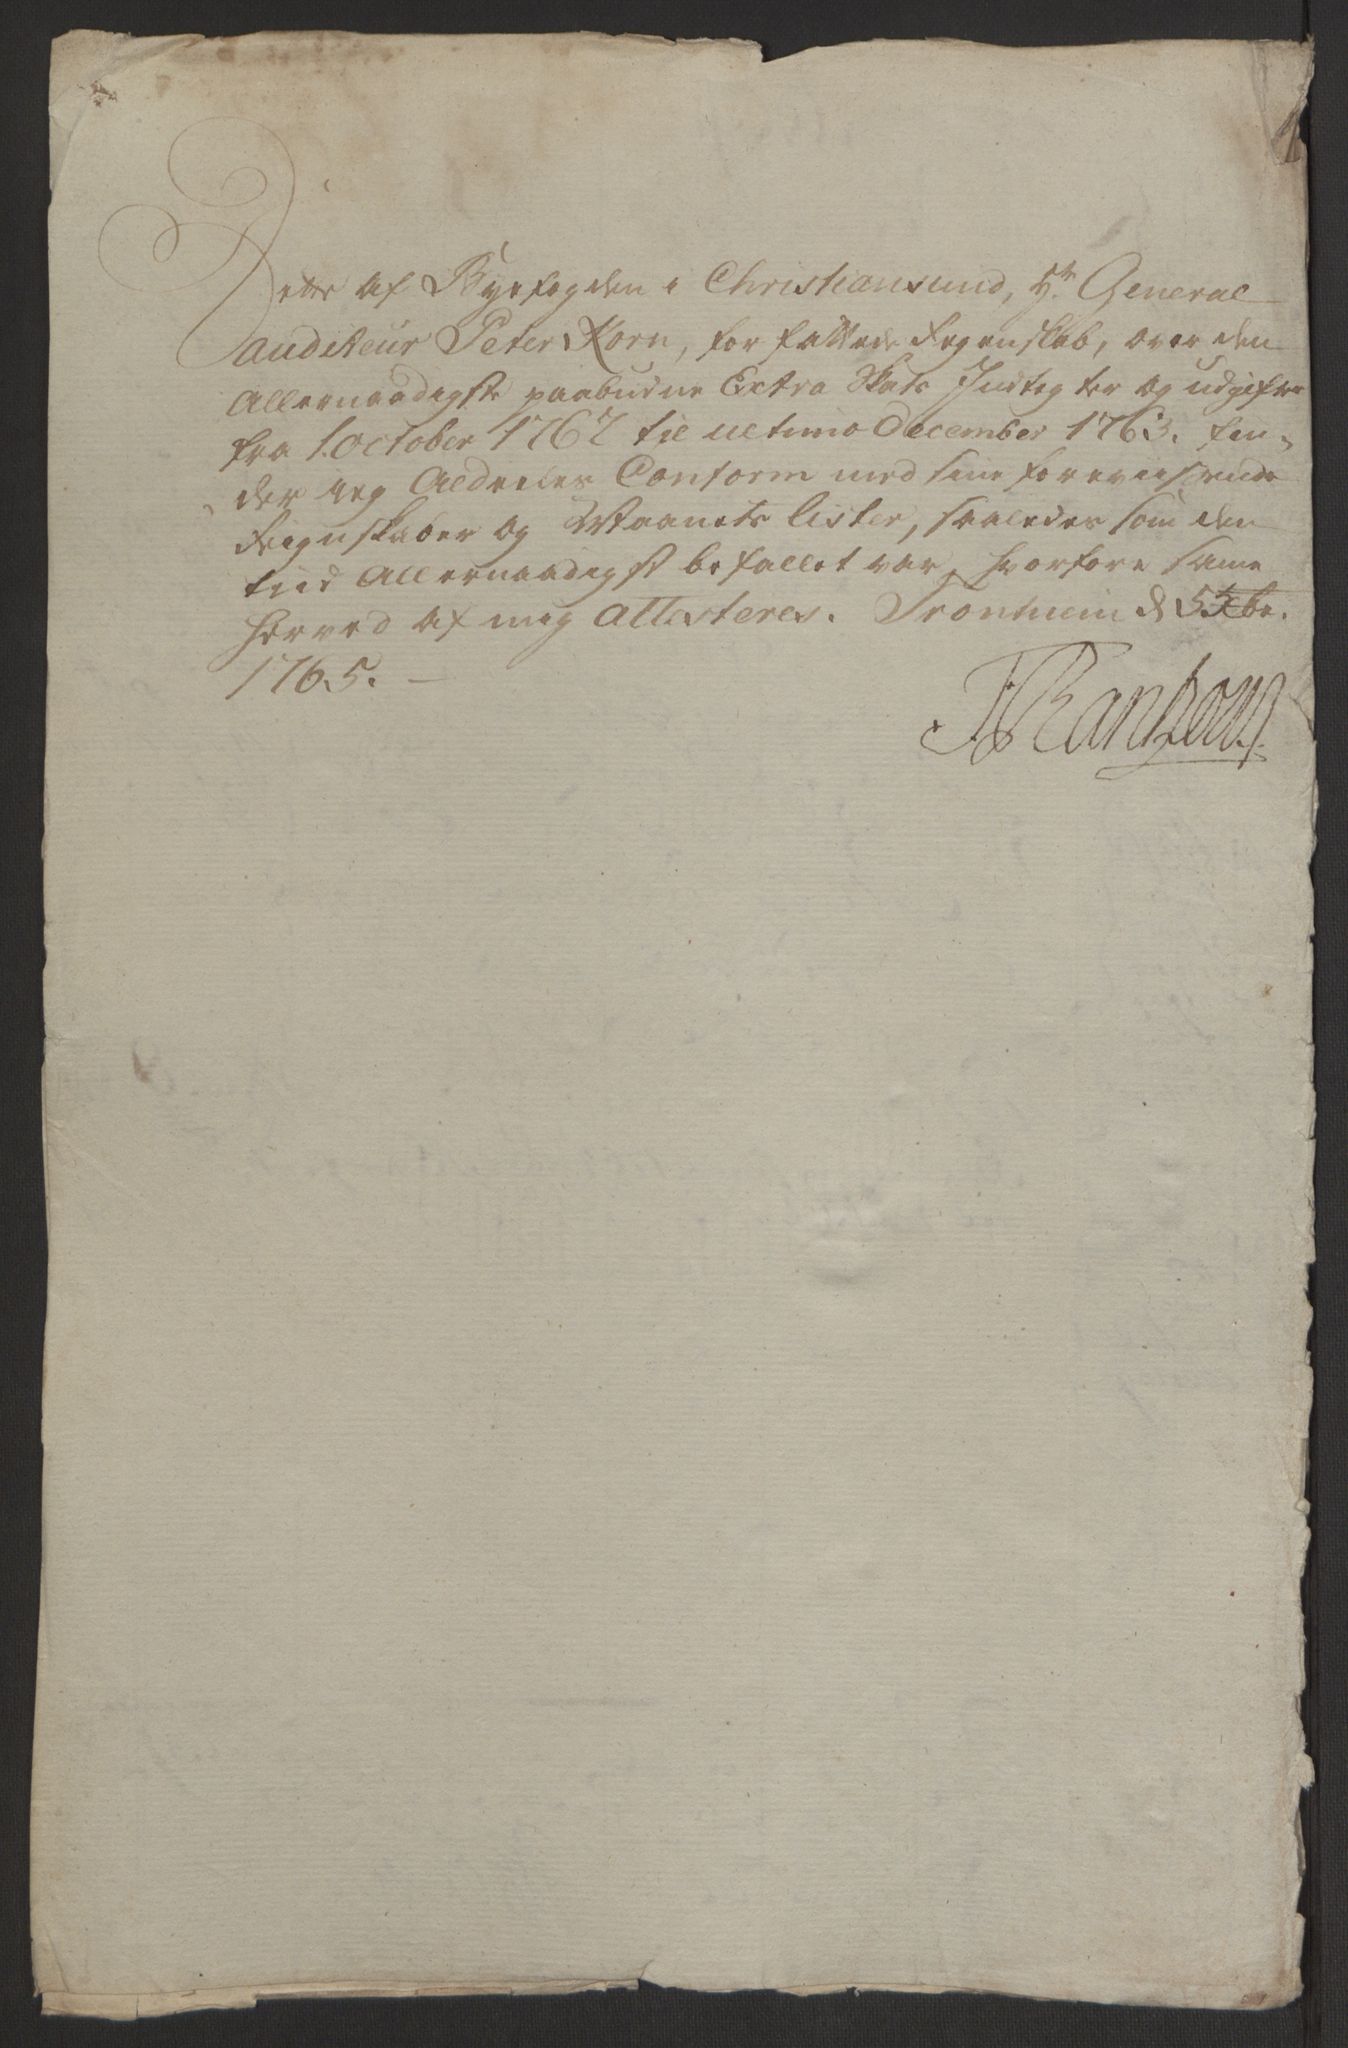 Dette af Byefogden i Christiansund, Hr. General
auditeur Peter Korn, forfattede Regenskab, over den
Allernaadigste paabudne Extra Skats Indtegter og udgifter
fra 1. October 1762 til ultimo December 1763. fin-
der ieg Aldeeles Conform med sine foreviisende
Reignskaber og Maanets lister, saaledes som den
tiid Allernaadigst befallet var, hvorfore same
herved af mig Attesteres. Tronhiem d 5 Xbr.
1765. —
Rantzow